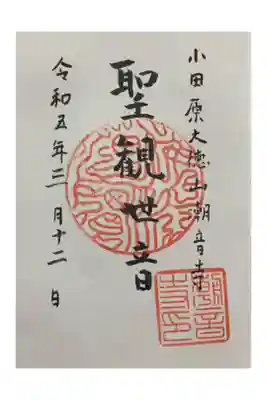 小田原大德山潮音寺
聖観世音
令和五年三月十二日